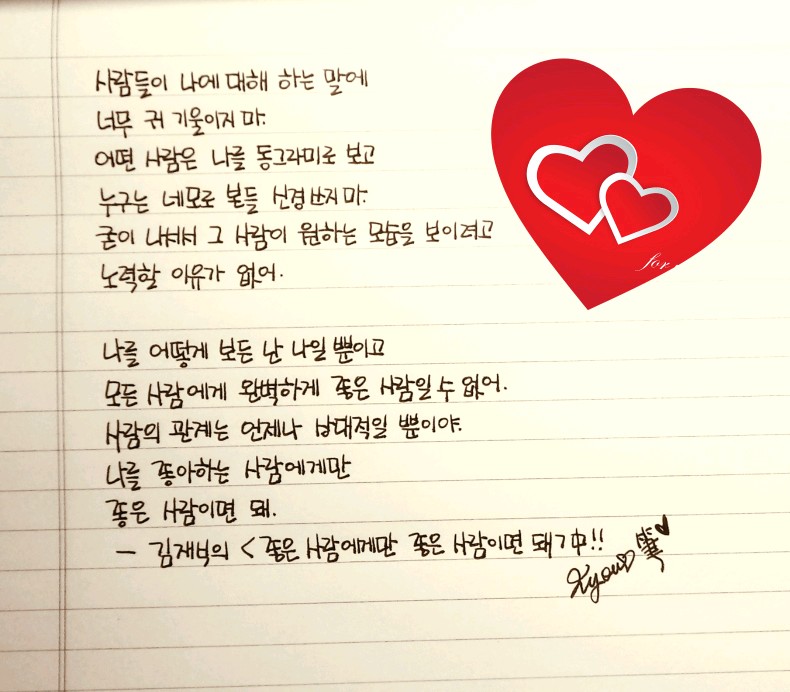 사람들이 나에 대해 하는 말에
너무 귀 기울이지 마.
어떤 사람은 나를 동그라미로 보고
누구는 네모로 본들 신경 쓰지 마.
굳이 나서서 그 사람이 원하는 모습을 보이려고
노력할 이유가 없어.
for
나를 어떻게 보든 난 나일 뿐이고
모든 사람에게 완벽하게 좋은 사람일 수 없어.
사람의 관계는 언제나 상대적일 뿐이야.
나를 좋아하는 사람에게만
좋은 사람이면 돼.
- 김재식의 <좋은 사람에게만 좋은 사람이면 돼> 中!!